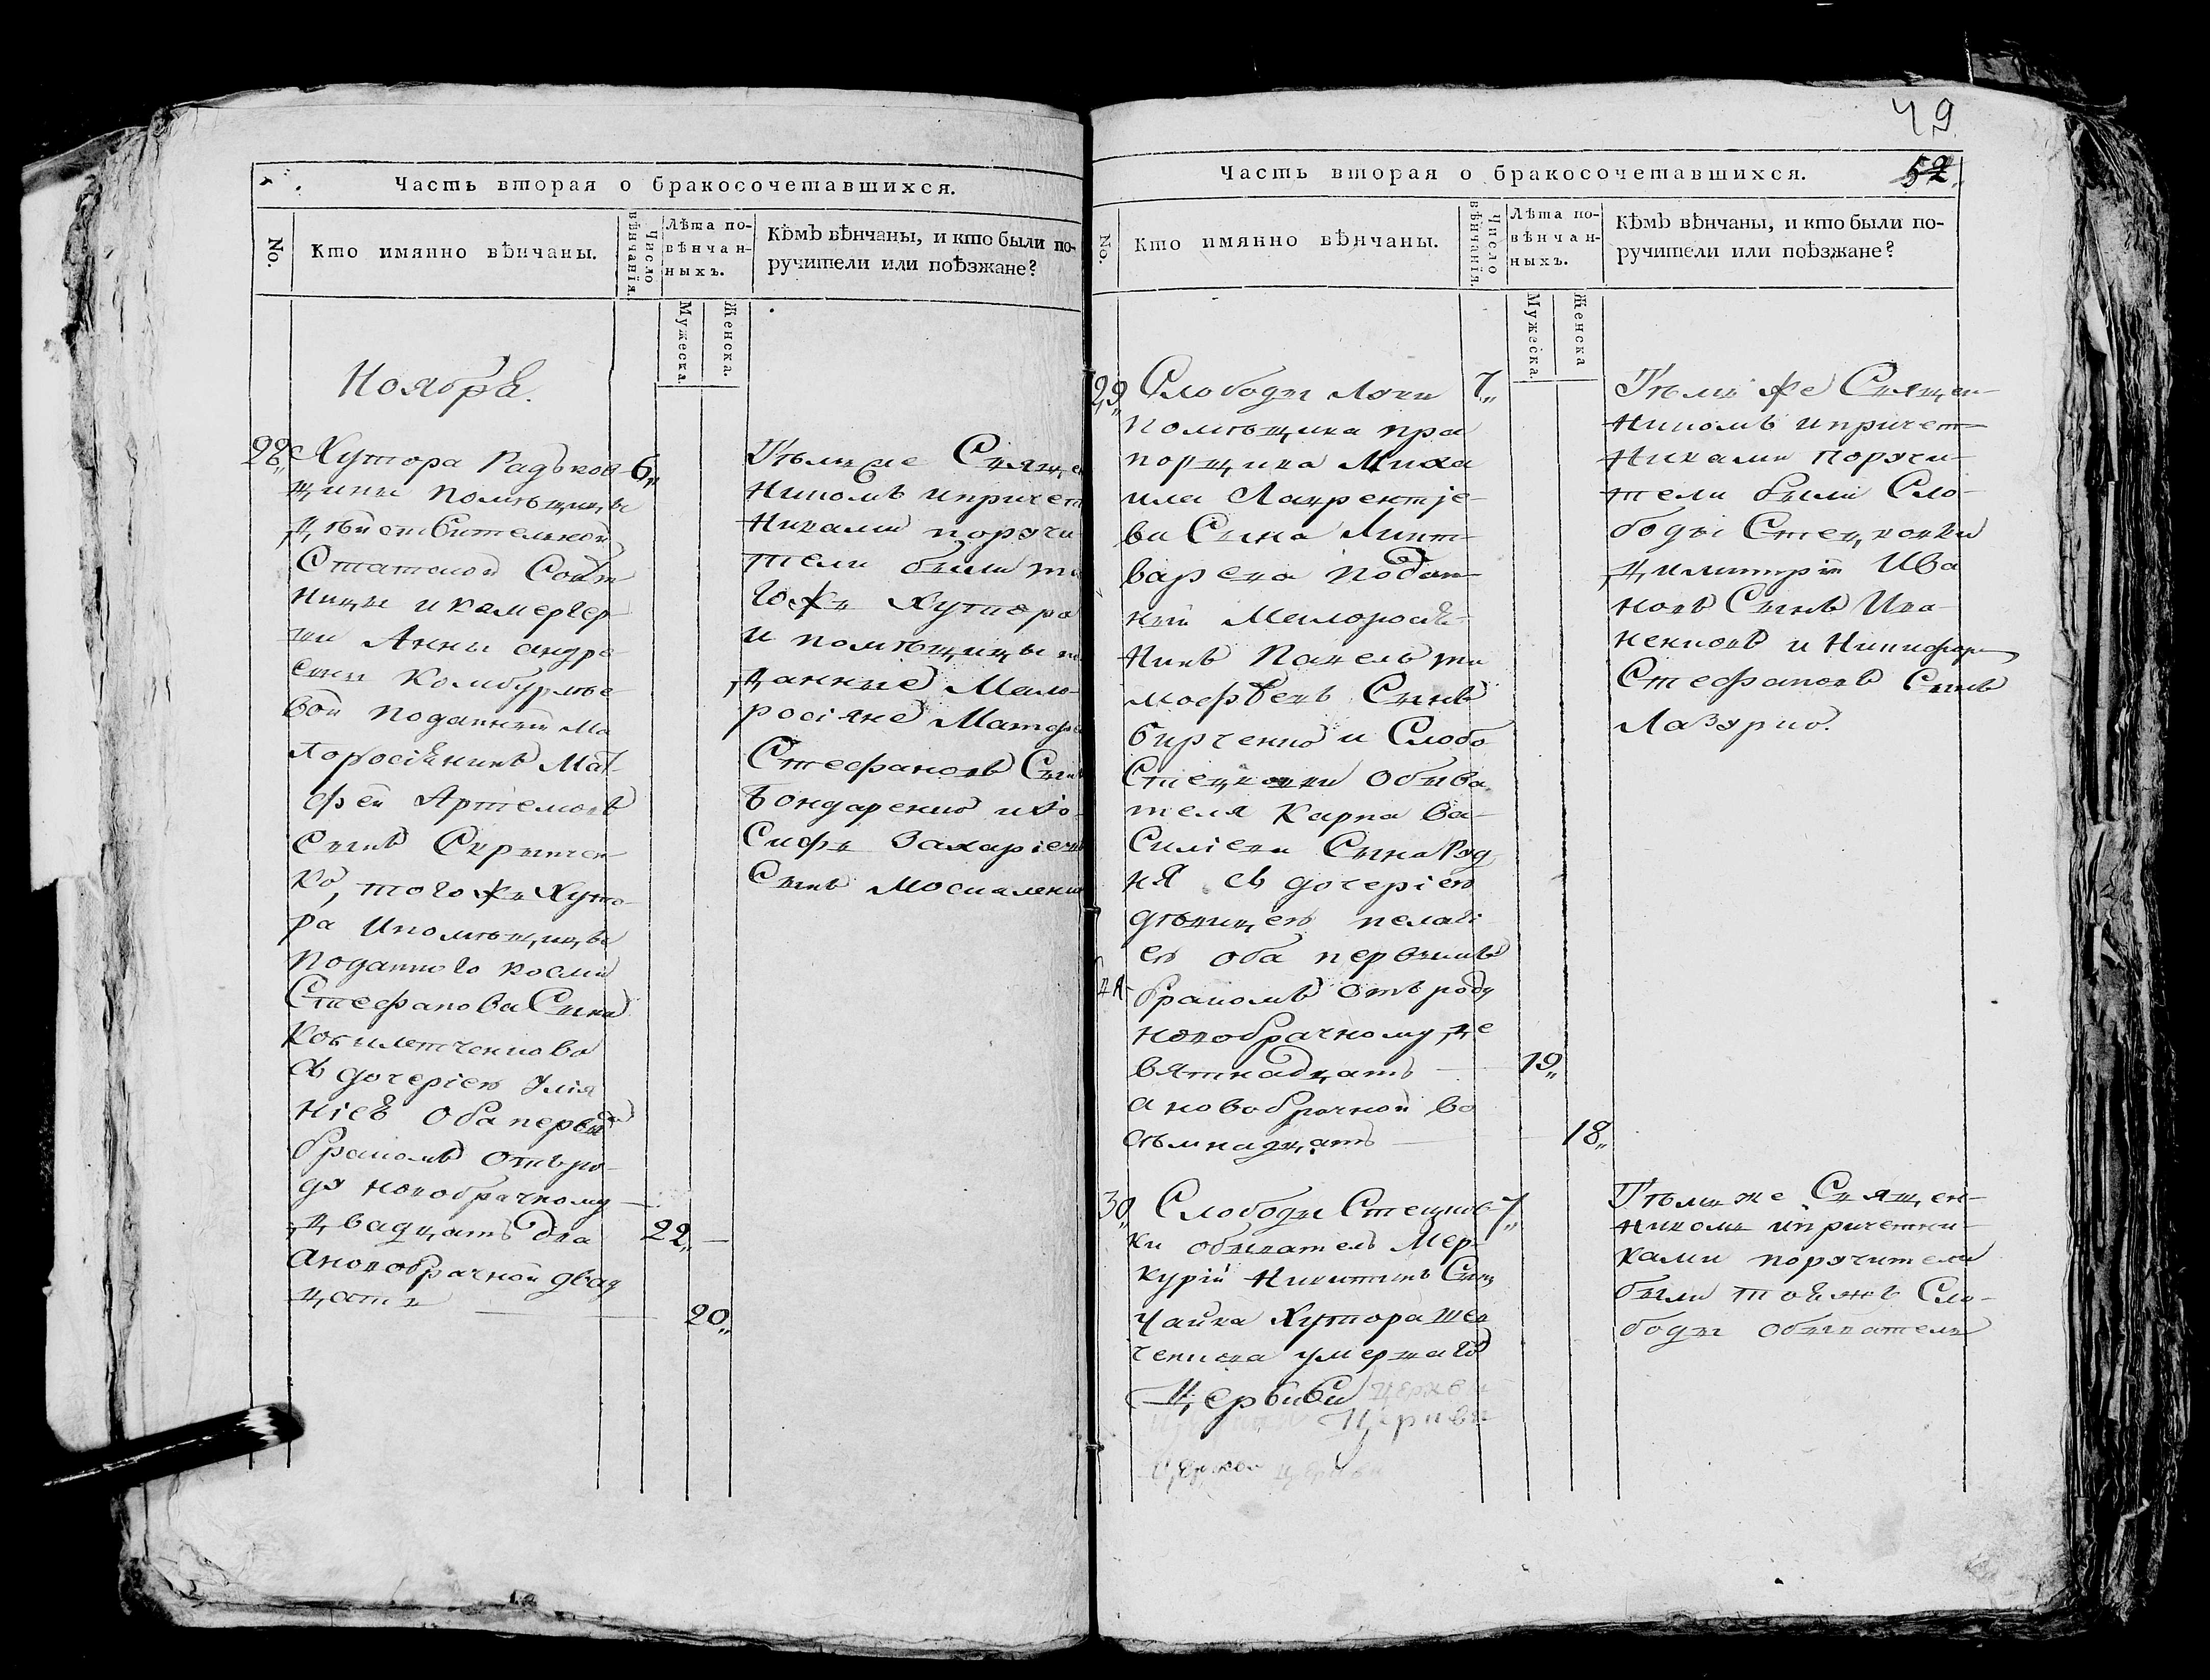 Часть вторая о бракосочетавшихся.
No.
Кто имянно вѣнчаны.
Число вѣнчанія.
Лѣта по-
вѣнчан-
ныхъ.
Мужеска.
Женска.
Кѣмъ вѣнчаны, и кто были по-
ручители или поѣзжане?
Ноября
28„
Хутора Радьков-
щины помѣщицы
дѣйствителной
Статской Совѣт
ницы и камергер
ши Анны андре
евны Комбурлѣе
вой поданный Ма
лоросіянинъ Мат
фей Артемовъ
Сынъ Скрыпчен
ко, того жъ Хуто
ра ипомѣщицы
поданного косми
Стефанова Сына
Кобилетченкова
съ дочеріею Улія
ніею Оба первымъ
бракомъ Отъ ро
ду новобрачному
двадцать два
ановобрачной двад
цать
6„
22„
20„
Тѣмже Священ
никомъ ипричет
никами поручи
тели были то
гожъ Хутора
и помѣщицы по
данные Мало
росіяне Матфей
Стефановъ Сынъ
Бондаренко иІо
сифъ Захаріевъ
Сынъ Москаленко
49
52.
Часть вторая о бракосочетавшихся.
No.
Кто имянно вѣнчаны.
Число вѣнчанія.
Лѣта по-
вѣнчан-
ныхъ.
Мужеска.
Женска
Кѣмъ вѣнчаны, и кто были по-
ручители или поѣзжане?
29„
Слободы Локни
помѣщика пра
порщика Миха
ила Лаврентіе-
ва Сына Линт-
варева подан
ный Малоросія
нинъ Павелъ ти
мофѣевъ Сынъ
бирченко и Слобо
Стецковки Обыва
теля Карпа Ва-
силіева Сына Руд
ня съ дочеріею
дѣвицею пелагі
ею оба первымъ
бракомъ отъ роду
новобрачному де
вятнадцать
а новобрачной во
сѣмнадцать
7„
19„
18„
Тѣмъ же Священ-
никомъ ипричет-
никами поручи-
тели были Сло-
боды Стецковки
димитрій Ива
новъ Сынъ Ива-
ненковъ и Никифоръ
Стефановъ Сынъ
Лазурко.
30„
Слободы Стецков-
ки обыватель Мер-
курій Никитинъ Сынъ
Чайка Хутора шев
ченкова умершаго
Церькви церкви
Церкви
церкви церкви
7„
Тѣмъ же Священ-
никомъ ипричетни-
ками поручители
были тояжъ Сло-
боды обыватели